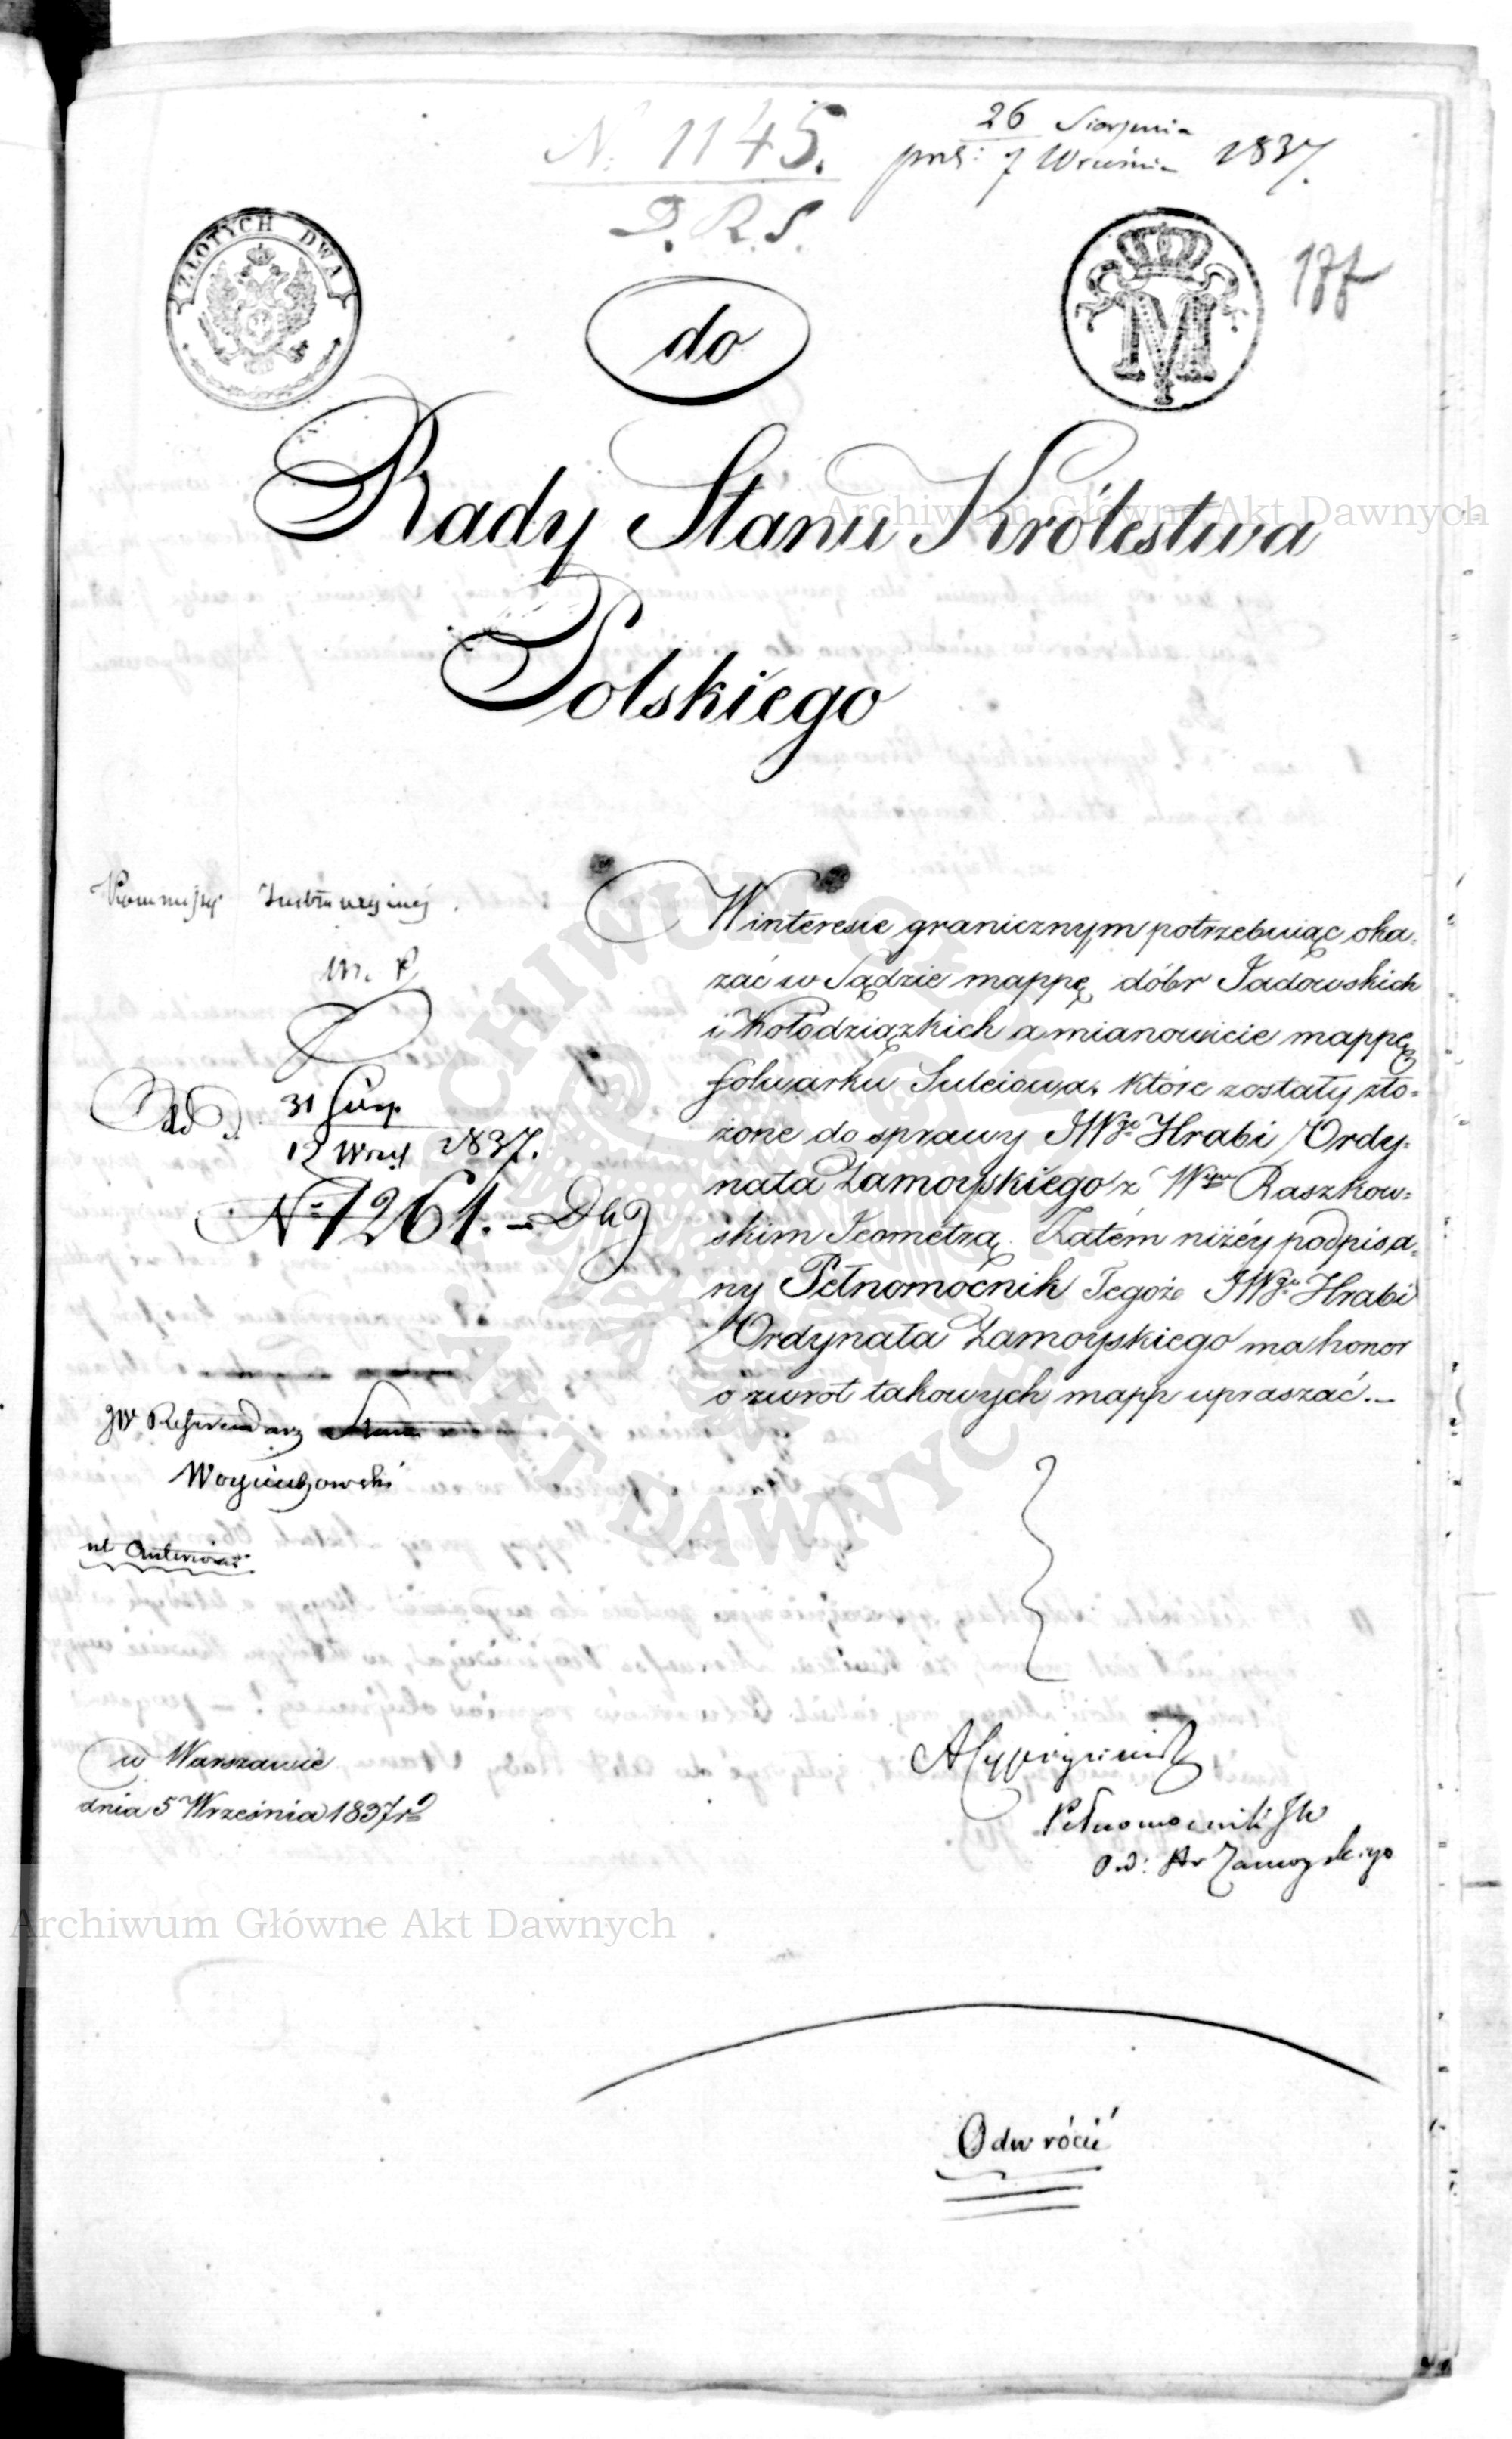 N. 1145.
D. R. S.
26 Sierpnia
7 Września 1837.
177
ZŁOTYCH DWA
M
do
Rady Stanu Królestwa
Polskiego
Archiwum Główne Akt Dawnych
Kommissyi Instrukcyjnej.
31 Sierp.
12 Wrześ 1837.
N: 1261.
JW Referendarz
Woyciechowski
ut anterior
W interesie granicznym potrzebuiąc oka-
zać w Sądzie mappę dóbr Jadowskich
i Kołodziązkich a mianowicie mappę
folwarku Sulciowa, które zostały zło-
żone do sprawy JWgo Hrabi Ordy-
nata Zamoyskiego z Wym Raszkow-
skim Jeometrą. Zatém niżéy podpisa-
ny Pełnomocnik Tegoże JWgo Hrabi
Ordynata Zamoyskiego ma honor
o zwrot takowych mapp upraszać.—
w Warszawie
dnia 5 Września 1837 r.
Pełnomocnik JW
Ord: Hr Zamoyskiego
Archiwum Główne Akt Dawnych
Odwrócić
ARCHIWUM GŁÓWNE AKT DAWNYCH